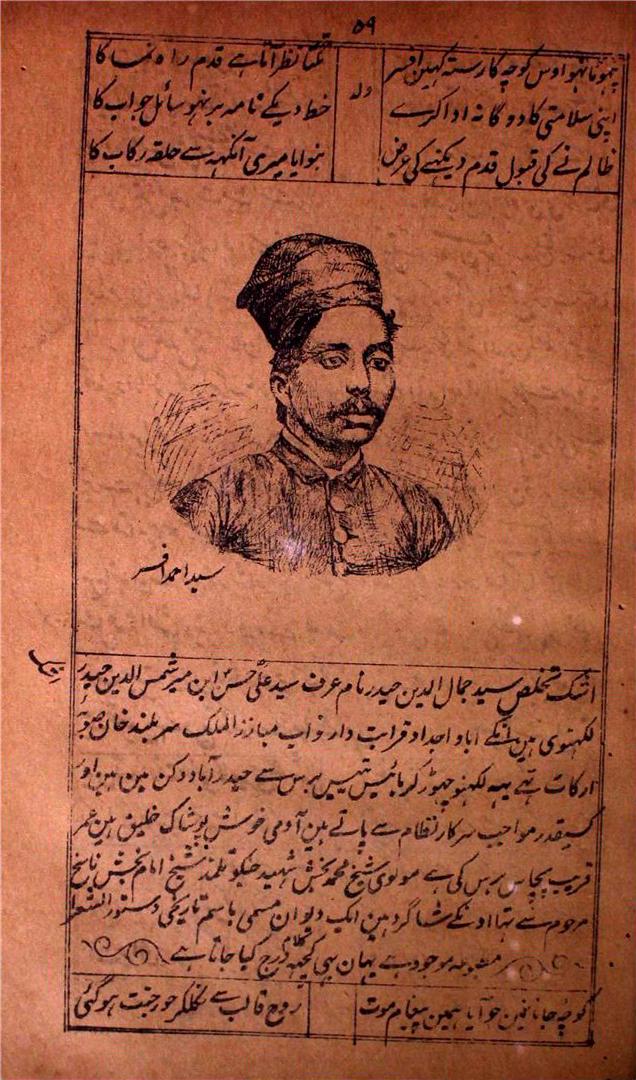 ۵۹
چھوٹا نہو اوس کوچہ کا رستہ کہین افسر تکتا نظر آتا ہے قدم راہ نما کا
ولہ
اپنی سلامتی کا دوگانہ ادا کرے خط دیکے نامہ بر نہو سائل جواب کا
ظالم نے کی قبول قدم دیکہنے کی عرض بنوایا میری آنکہہ سے حلقہ رکاب کا
سید احمد افسر
اشک تخلص سید جمال الدین حیدر نام عرف سید علی حسن ابن میر شمس الدین حیدر
لکہنوی ہین انکے اباو اجداد قرابت دار نواب مبارز الملک سر بلند خان
ارکات تہے یہہ لکہنو چہوڑ کر بائیس تئیس برس سے حیدر آباد دکن مین ہین اور
کسیقدر مواجب سرکار نظام سے پاتے ہین آدمی خوش پوشاک خلیق ہین عمر
قریب پچاس برس کی ہے مولوی شیخ محمد بخش شہید جنکو تلمذ شیخ امام بخش ناسخ
مرحوم سے تہا اونکے شاگرد ہین ایک دیوان مسمی باسم تاریخی دستور الشعرا
مطبوعہ موجود ہے یہان بہی کچہہ درج کیا جاتا ہے
کوچہ جانانمین جو آیا ہمین پیغام موت روح قالب سے نکلکر حور جنت ہوگئی